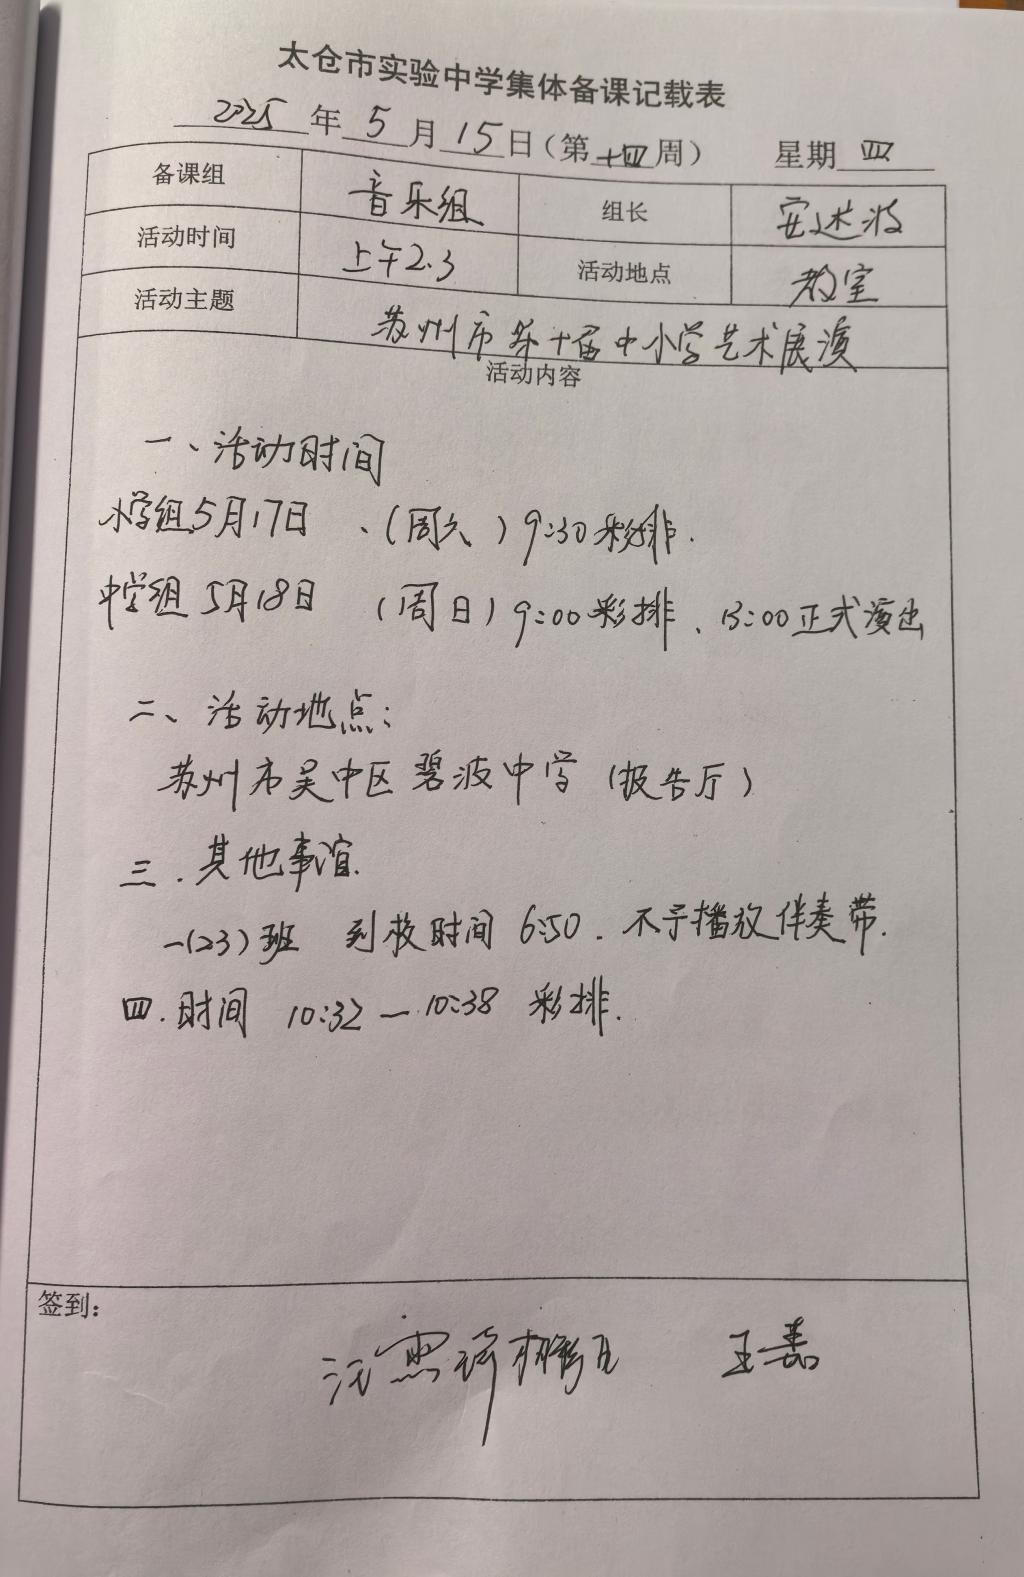 太仓市实验中学集体备课记载表
2025年5月15日(第十四周) 星期四
备课组 音乐组 组长 安述波
活动时间 上午2.3 活动地点 教室
活动主题 苏州市第十届中小学艺术展演
活动内容
一、活动时间
小学组5月17日、(周六)9:30彩排.
中学组5月18日 (周日)9:00彩排、13:00正式演出
二、活动地点:
苏州市吴中区碧波中学(报告厅)
三.其他事谊.
一(23)班 到校时间 6:50.不予播放伴奏带.
四.时间 10:32—10:38 彩排.
签到:
王嘉